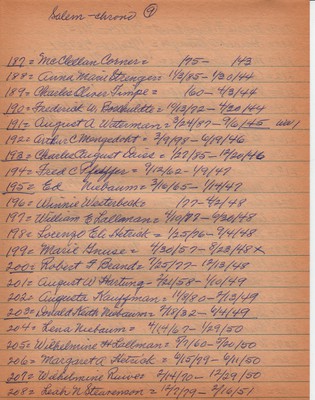 Salem - chrono 9
187= McClellan Corner= 1895- 1943
188= Anna Marie Ettenger= 1/3/85- 1/30/44
189= Charles Oliver Timpe= 1860 - 4/3/44
190= Frederick W. 10/13/72 - 4/20/44
191= August A Waterman= 3/24/87 - 9/6/45 WW1
192= Arthur C Mengedoht= 3/9/98 - 6/19/46
193= Charles August 1/27/85 - 12/20/46
194= Fred C. Pfeiffer= 9/12/62 - 1/9/47
195= Ed Niebaum= 2/16/65 - 1/14/47
196= Winnie Westerbeck=
197= William E Lallman= - 4/20/48
198= Lorenzo Eli Hetrick= 1/25/76 - 9/4/48
199= Marie Gnuse= 4/30/57 - 8/23/48
200= Robert F Brand= 7/25/77 12/13/48
201= August W Hartung= 2/21/58 - 1/10/49
202= Augusta Kauffman= 11/9/80 - 2/13/49
203= Donald Keith Niebaum= 7/18/32 - 4/4/49
204= Lena Niebaum= 4/14/67 - 1/29/50
205= Wilhelmine H Lallman= 2/7/60 - 3/20/50
206= Margaret A Hetrick= 6/15/79 - 4/11/50
207= Wilhelmine 2/14/70 - 12/29/50
208= Leah N Stevenson= 12/2/79 - 2/16/51